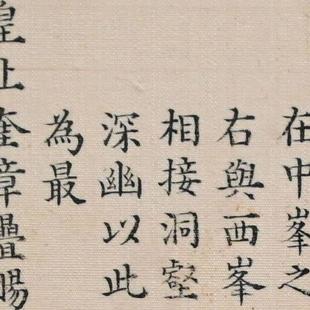 在中峯之
右與西峯
相接洞壑
深幽以此
為最
皇止奎章疊賜